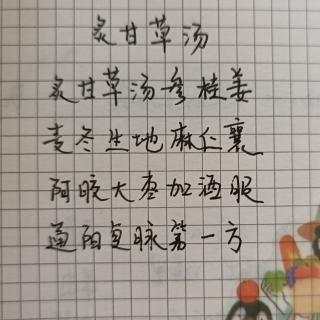 炙甘草汤
炙甘草汤参桂姜
麦冬生地麻仁襄
阿胶大枣加酒服
通阳复脉第一方